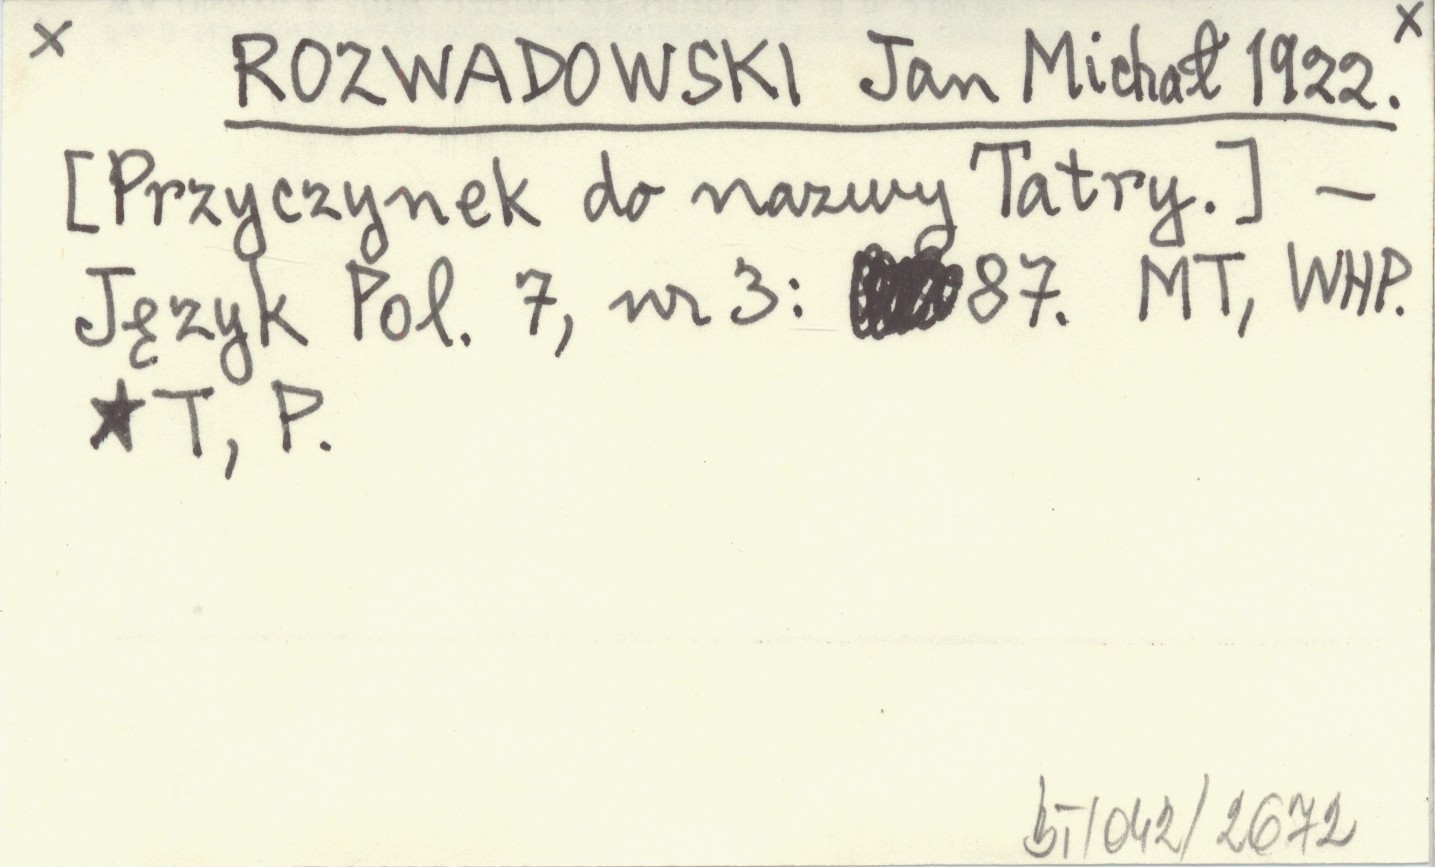 x ROZWADOWSKI Jan Michał 1922. x
[Przyczynek do nazwy Tatry.] —
Język Pol. 7, nr 3: 87. MT, WHP.
★ T, P.
bT/042/2672